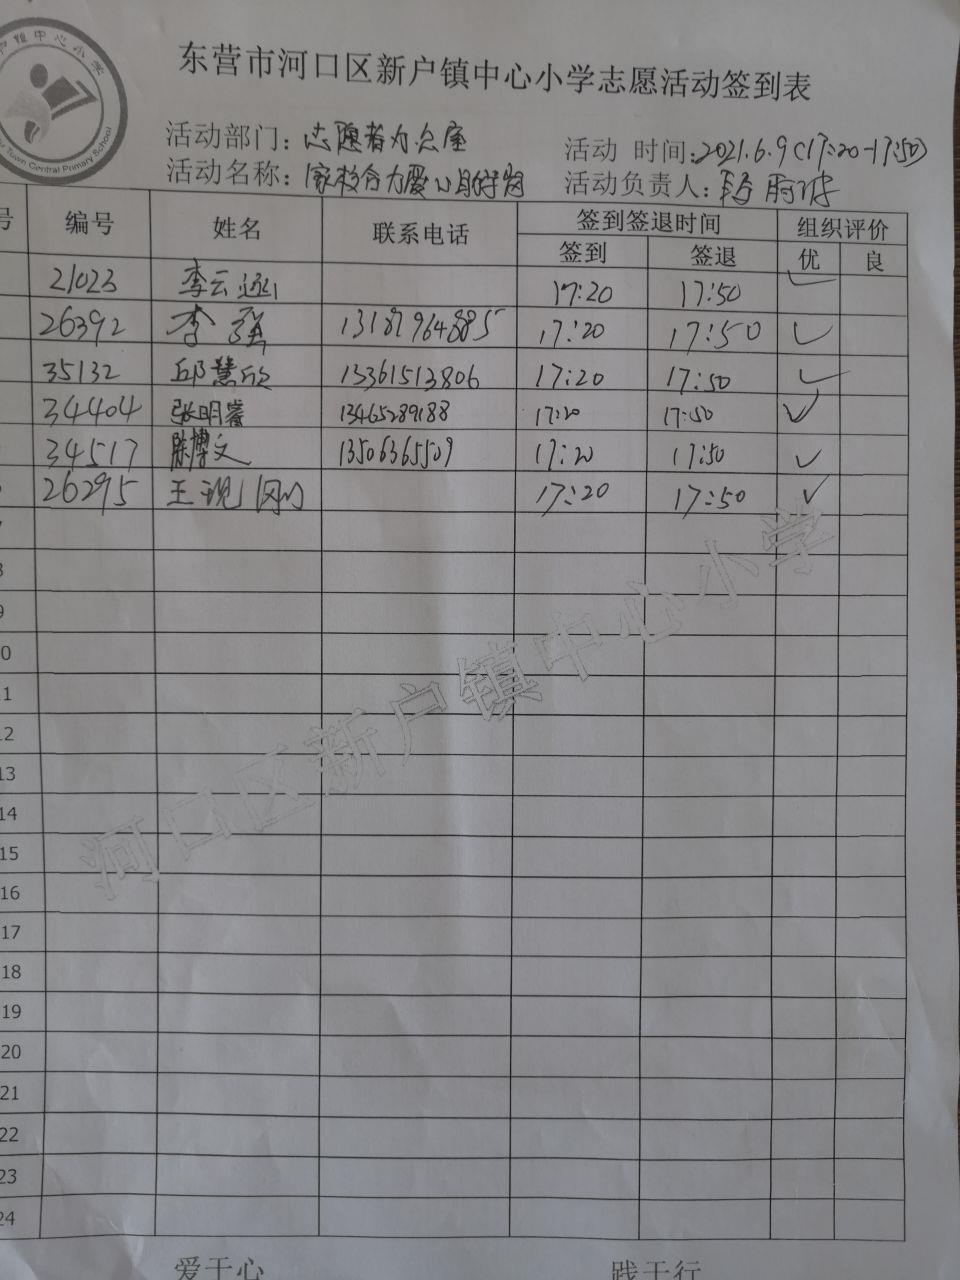 东营市河口区新户镇中心小学志愿活动签到表
活动部门：志愿者办公室
活动 时间：2021.6.9（17:20-17:50）
活动名称：家校合力爱心
活动负责人：
号 编号 姓名 联系电话 签到签退时间 组织评价
签到 签退 优 良
21023 李云 17:20 17:50 ✓
26392 李强 13181964885 17:20 17:50 ✓
35132 邱慧欣 13361513806 17:20 17:50 ✓
34404 张明睿 13465289188 17:20 17:50 ✓
34517 陈博文 13506365509 17:20 17:50 ✓
26295 王现 17:20 17:50 ✓
11
12
13
14
15
16
17
18
19
20
21
22
23
24
河口区新户镇中心小学
爱于心 践于行
Town Central Primary School
户镇中心小学